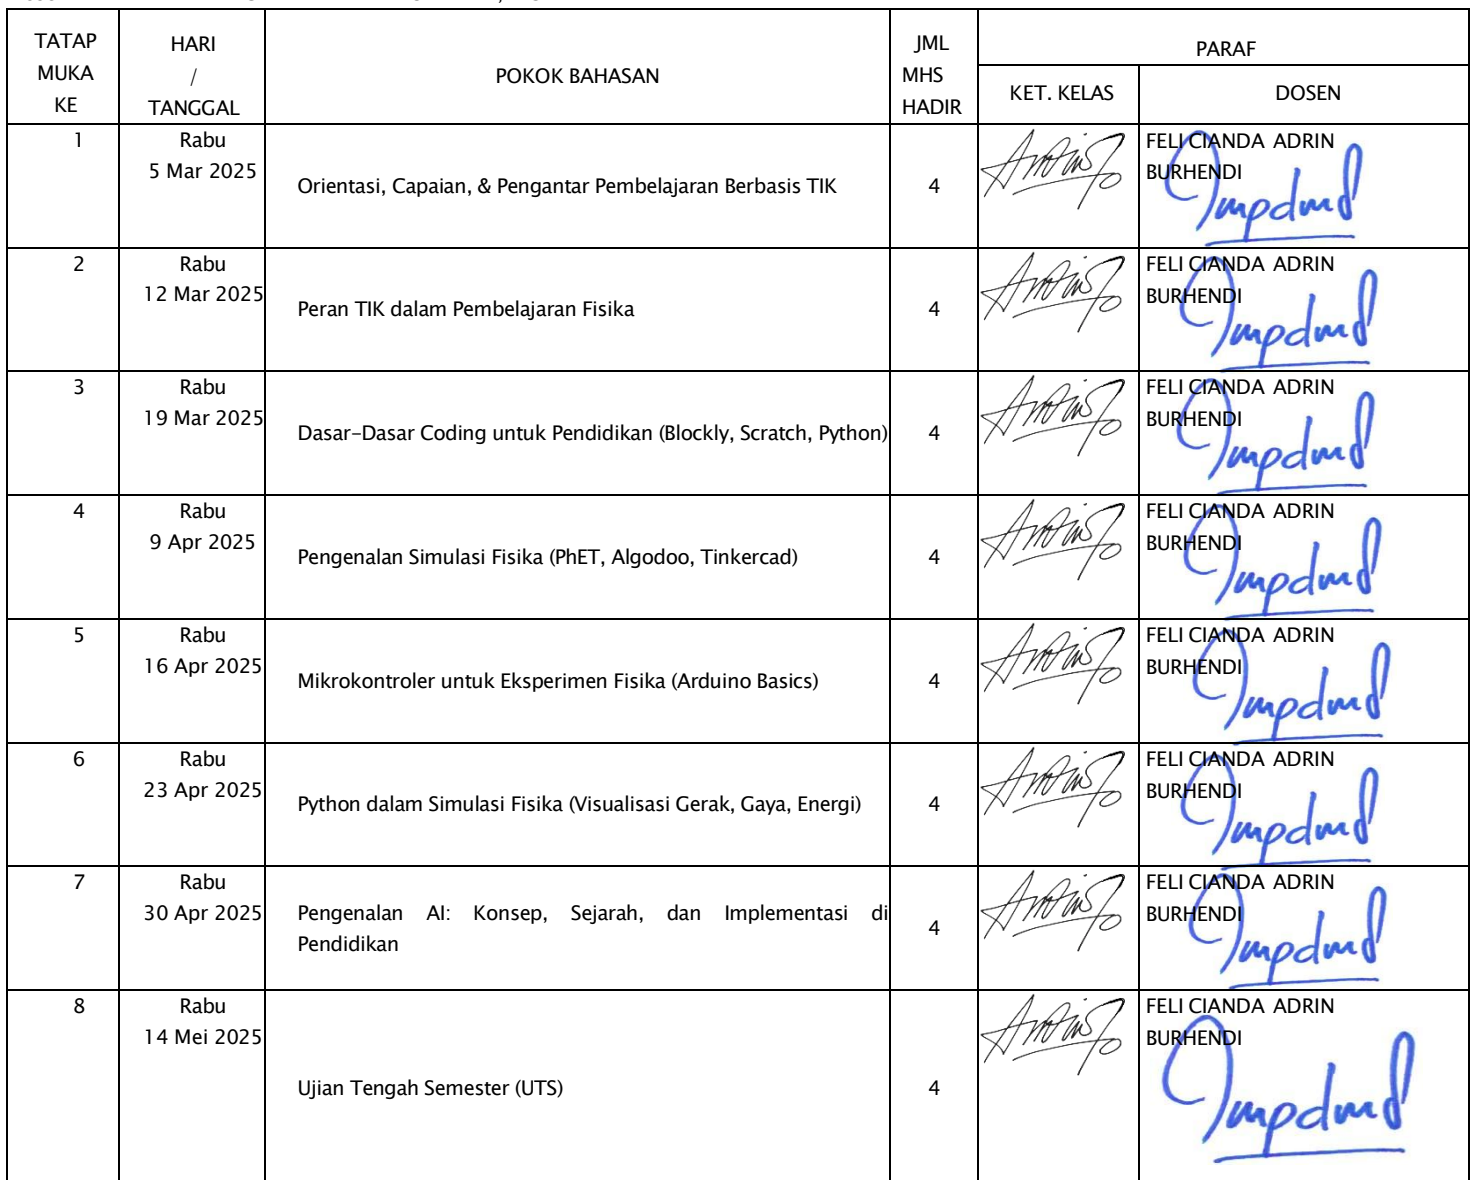 TATAP
MUKA
KE
HARI
/
TANGGAL
POKOK BAHASAN
JML
MHS
HADIR
PARAF
KET. KELAS
DOSEN
1
Rabu
5 Mar 2025
Orientasi, Capaian, & Pengantar Pembelajaran Berbasis TIK
4
FELI CIANDA ADRIN
BURHENDI
2
Rabu
12 Mar 2025
Peran TIK dalam Pembelajaran Fisika
4
FELI CIANDA ADRIN
BURHENDI
3
Rabu
19 Mar 2025
Dasar-Dasar Coding untuk Pendidikan (Blockly, Scratch, Python)
4
FELI CIANDA ADRIN
BURHENDI
4
Rabu
9 Apr 2025
Pengenalan Simulasi Fisika (PhET, Algodoo, Tinkercad)
4
FELI CIANDA ADRIN
BURHENDI
5
Rabu
16 Apr 2025
Mikrokontroler untuk Eksperimen Fisika (Arduino Basics)
4
FELI CIANDA ADRIN
BURHENDI
6
Rabu
23 Apr 2025
Python dalam Simulasi Fisika (Visualisasi Gerak, Gaya, Energi)
4
FELI CIANDA ADRIN
BURHENDI
7
Rabu
30 Apr 2025
Pengenalan AI: Konsep, Sejarah, dan Implementasi di
Pendidikan
4
FELI CIANDA ADRIN
BURHENDI
8
Rabu
14 Mei 2025
Ujian Tengah Semester (UTS)
4
FELI CIANDA ADRIN
BURHENDI